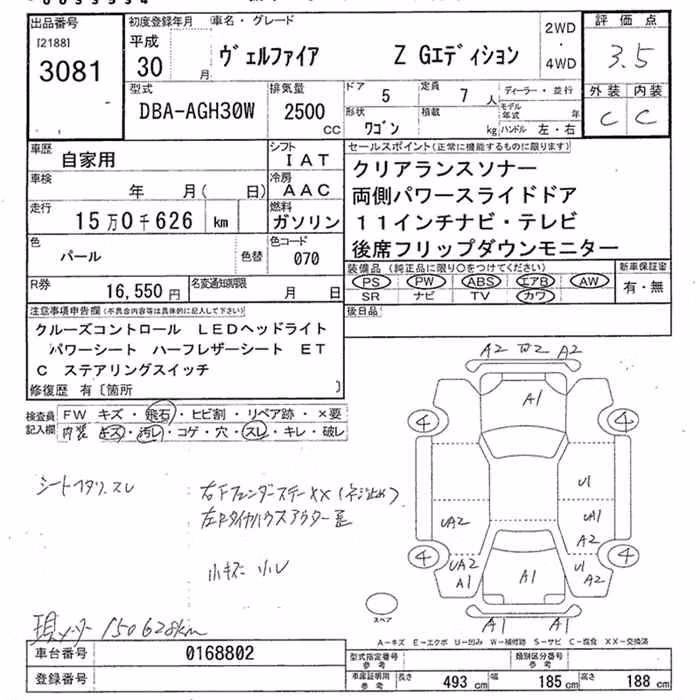 出品番号
[2188]
3081
初度登録年月
平成
30 月
車名・グレード
ヴェルファイア Z Gエディション
2WD
・
4WD
評価点
3.5
外装 内装
C C
型式
DBA-AGH30W
排気量
2500
CC
ドア 5
定員 7 人
形状 ワゴン
積載 kg
ディーラー・並行
モデル年式 年
ハンドル 左・右
車歴 自家用
シフト IAT
車検 年 月( 日)
冷房 AAC
走行 15万0千626 km
燃料 ガソリン
色 パール 色替
色コード 070
R券 16,550円
名変通知期限 月 日
セールスポイント(正常に機能するものに限ります)
クリアランスソナー
両側パワースライドドア
11インチナビ・テレビ
後席フリップダウンモニター
装備品 (純正品に限り○をつけてください)
PS PW ABS エアB AW
SR ナビ TV カワ
新車保証書
有・無
後日品
注意事項申告欄(不具合内容等は具体的に記入して下さい)
クルーズコントロール LEDヘッドライト
パワーシート ハーフレザーシート ET
C ステアリングスイッチ
修復歴 有〔箇所 〕
検査員記入欄
FW キズ・飛石・ヒビ割・リペア跡・×要
内装 キズ・汚レ・コゲ・穴・スレ・キレ・破レ
シートヘタリ、スレ
右Fフェンダーステー XX (ネジ止め)
小キズ 小レ
現メーター 150628km
A2 W2 A2
A1
4 4
U1
UA2 UA1
A2
4 4
UA2 U1
A1 A1 A2
A1 A1
スペア
A-キズ E-エクボ U-凹み W-補修跡 S-サビ C-腐食 XX-交換済
車台番号 0168802
登録番号
型式指定番号 参考
類別区分番号 参考
車庫証明用 参考
長さ 493 cm 幅 185 cm 高さ 188 cm